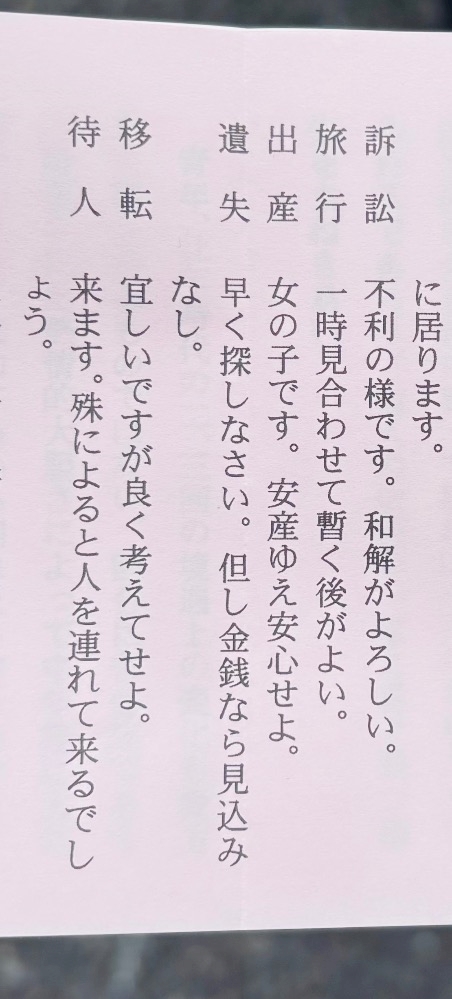 に居ります。
訴訟 不利の様です。和解がよろしい。
旅行 一時見合わせて暫く後がよい。
出産 女の子です。安産ゆえ安心せよ。
遺失 早く探しなさい。但し金銭なら見込み
なし。
移転 宜しいですが良く考えてせよ。
待人 来ます。殊によると人を連れて来るでし
ょう。